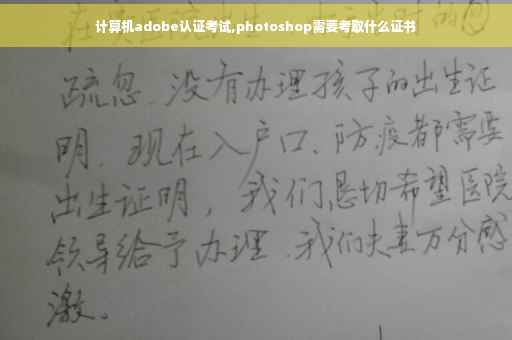 计算机adobe认证考试,photoshop需要考取什么证书
疏忽、没有办理孩子的出生证
明、现在入户口、防疫都需要
出生证明，我们恳切希望医院
领导给予办理、我们夫妻万分感
激。